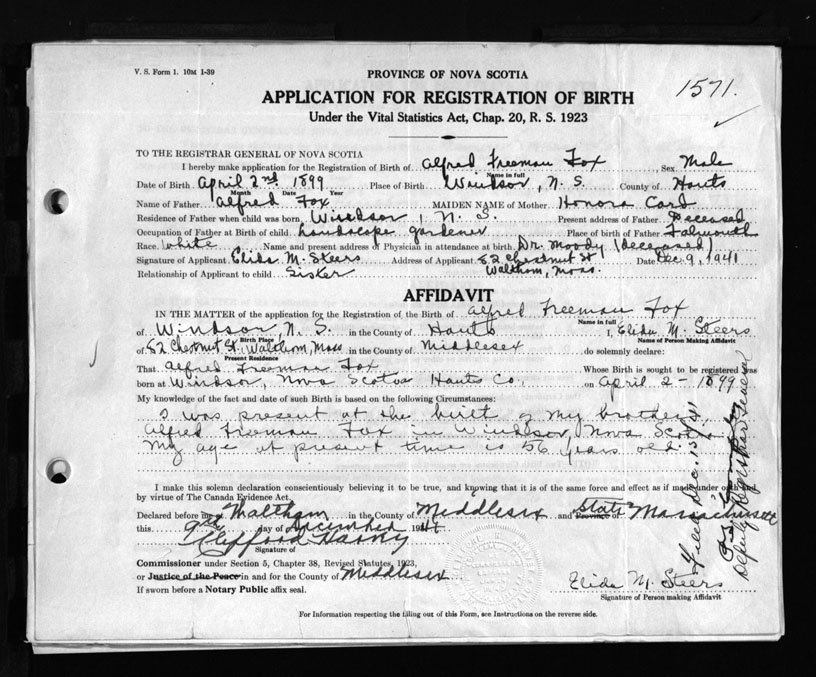 V. S. Form 1. 10M 1-39
PROVINCE OF NOVA SCOTIA
1571.
APPLICATION FOR REGISTRATION OF BIRTH
Under the Vital Statistics Act, Chap. 20, R. S. 1923
TO THE REGISTRAR GENERAL OF NOVA SCOTIA
I hereby make application for the Registration of Birth of Alfred Freeman Fox Sex Male
Name in full
Date of Birth April 2nd 1899 Place of Birth Windsor, N. S. County of Hants
Month Date Year
Name of Father Alfred Fox MAIDEN NAME of Mother Honora Card
Residence of Father when child was born Windsor, N. S. Present address of Father Deceased
Occupation of Father at Birth of child Landscape gardener Place of birth of Father Falmouth
Race White Name and present address of Physician in attendance at birth Dr. Moody (deceased)
Signature of Applicant Elida M. Steers Address of Applicant 82 Chestnut St Date Dec. 9, 1941
Relationship of Applicant to child Sister Waltham, Mass.
AFFIDAVIT
IN THE MATTER of the application for the Registration of the Birth of Alfred Freeman Fox
Name in full
of Windsor, N. S. in the County of Hants I, Elida M. Steers
Birth Place Name of Person Making Affidavit
of 82 Chestnut St. Waltham, Mass in the County of Middlesex do solemnly declare:
Present Residence
That Alfred Freeman Fox Whose Birth is sought to be registered was
born at Windsor, Nova Scotia Hants Co., on April 2 - 1899
My knowledge of the fact and date of such Birth is based on the following Circumstances:
I was present at the birth of my brother,
Alfred Freeman Fox in Windsor, Nova Scotia.
My age at present time is 56 years old.
I make this solemn declaration conscientiously believing it to be true, and knowing that it is of the same force and effect as if made under oath and
by virtue of The Canada Evidence Act.
Declared before me at Waltham in the County of Middlesex and Province of State Massachusetts
this 9th day of December 1941
Signature of
Commissioner under Section 5, Chapter 38, Revised Statutes, 1923,
or Justice of the Peace in and for the County of Middlesex
If sworn before a Notary Public affix seal.
Elida M. Steers
Signature of Person making Affidavit
For Information respecting the filling out of this Form, see Instructions on the reverse side.
Filed Dec. 15/41
Deputy Registrar General